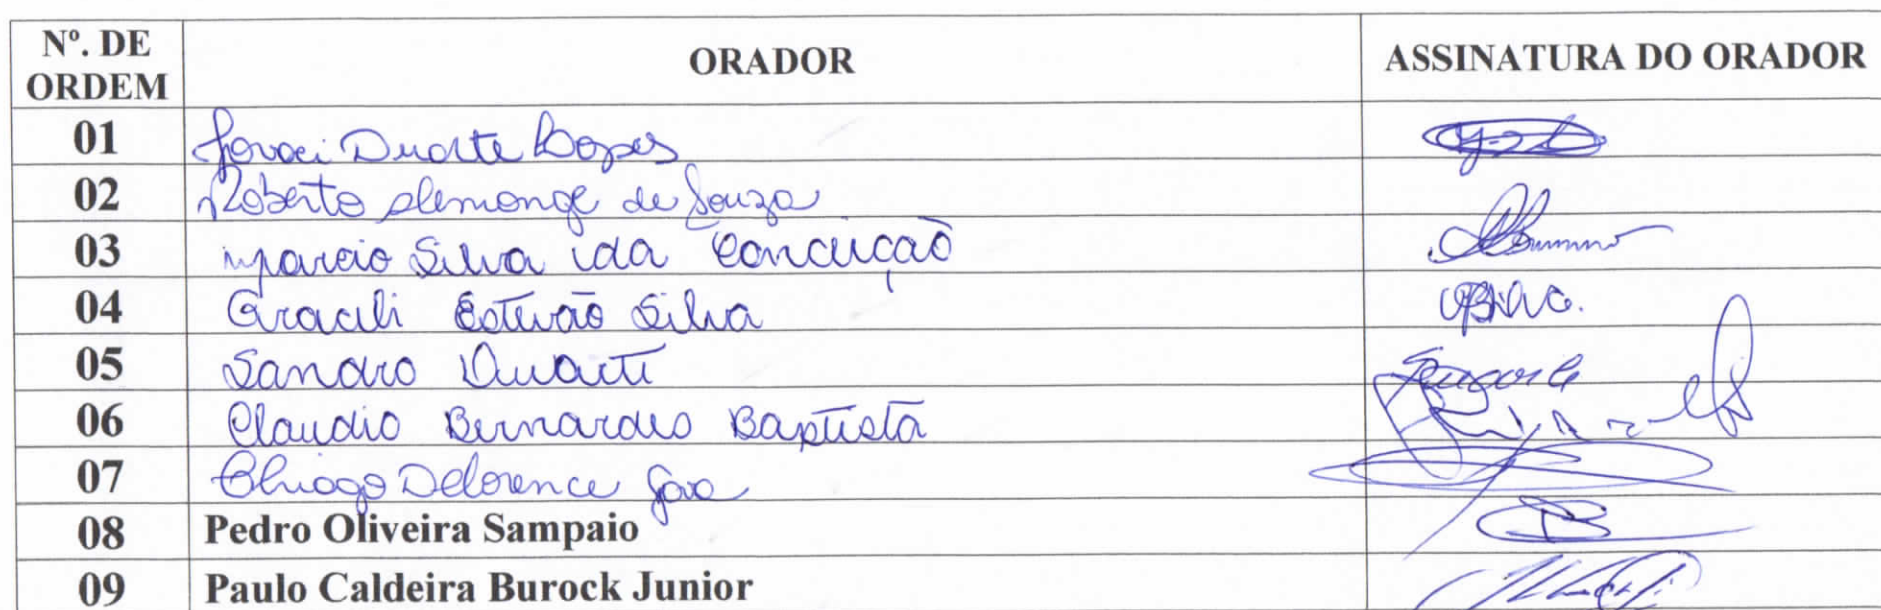 Nº. DE ORDEM ORADOR ASSINATURA DO ORADOR
01 Jovaci Duarte Lopes
02 Roberto Alemonge de Souza
03 Marcio Silva da Conceição
04 Gracieli Estevão Silva
05 Sandro Duarte
06 Claudio Bernardes Baptista
07 Thiago Delorence
08 Pedro Oliveira Sampaio
09 Paulo Caldeira Burock Junior